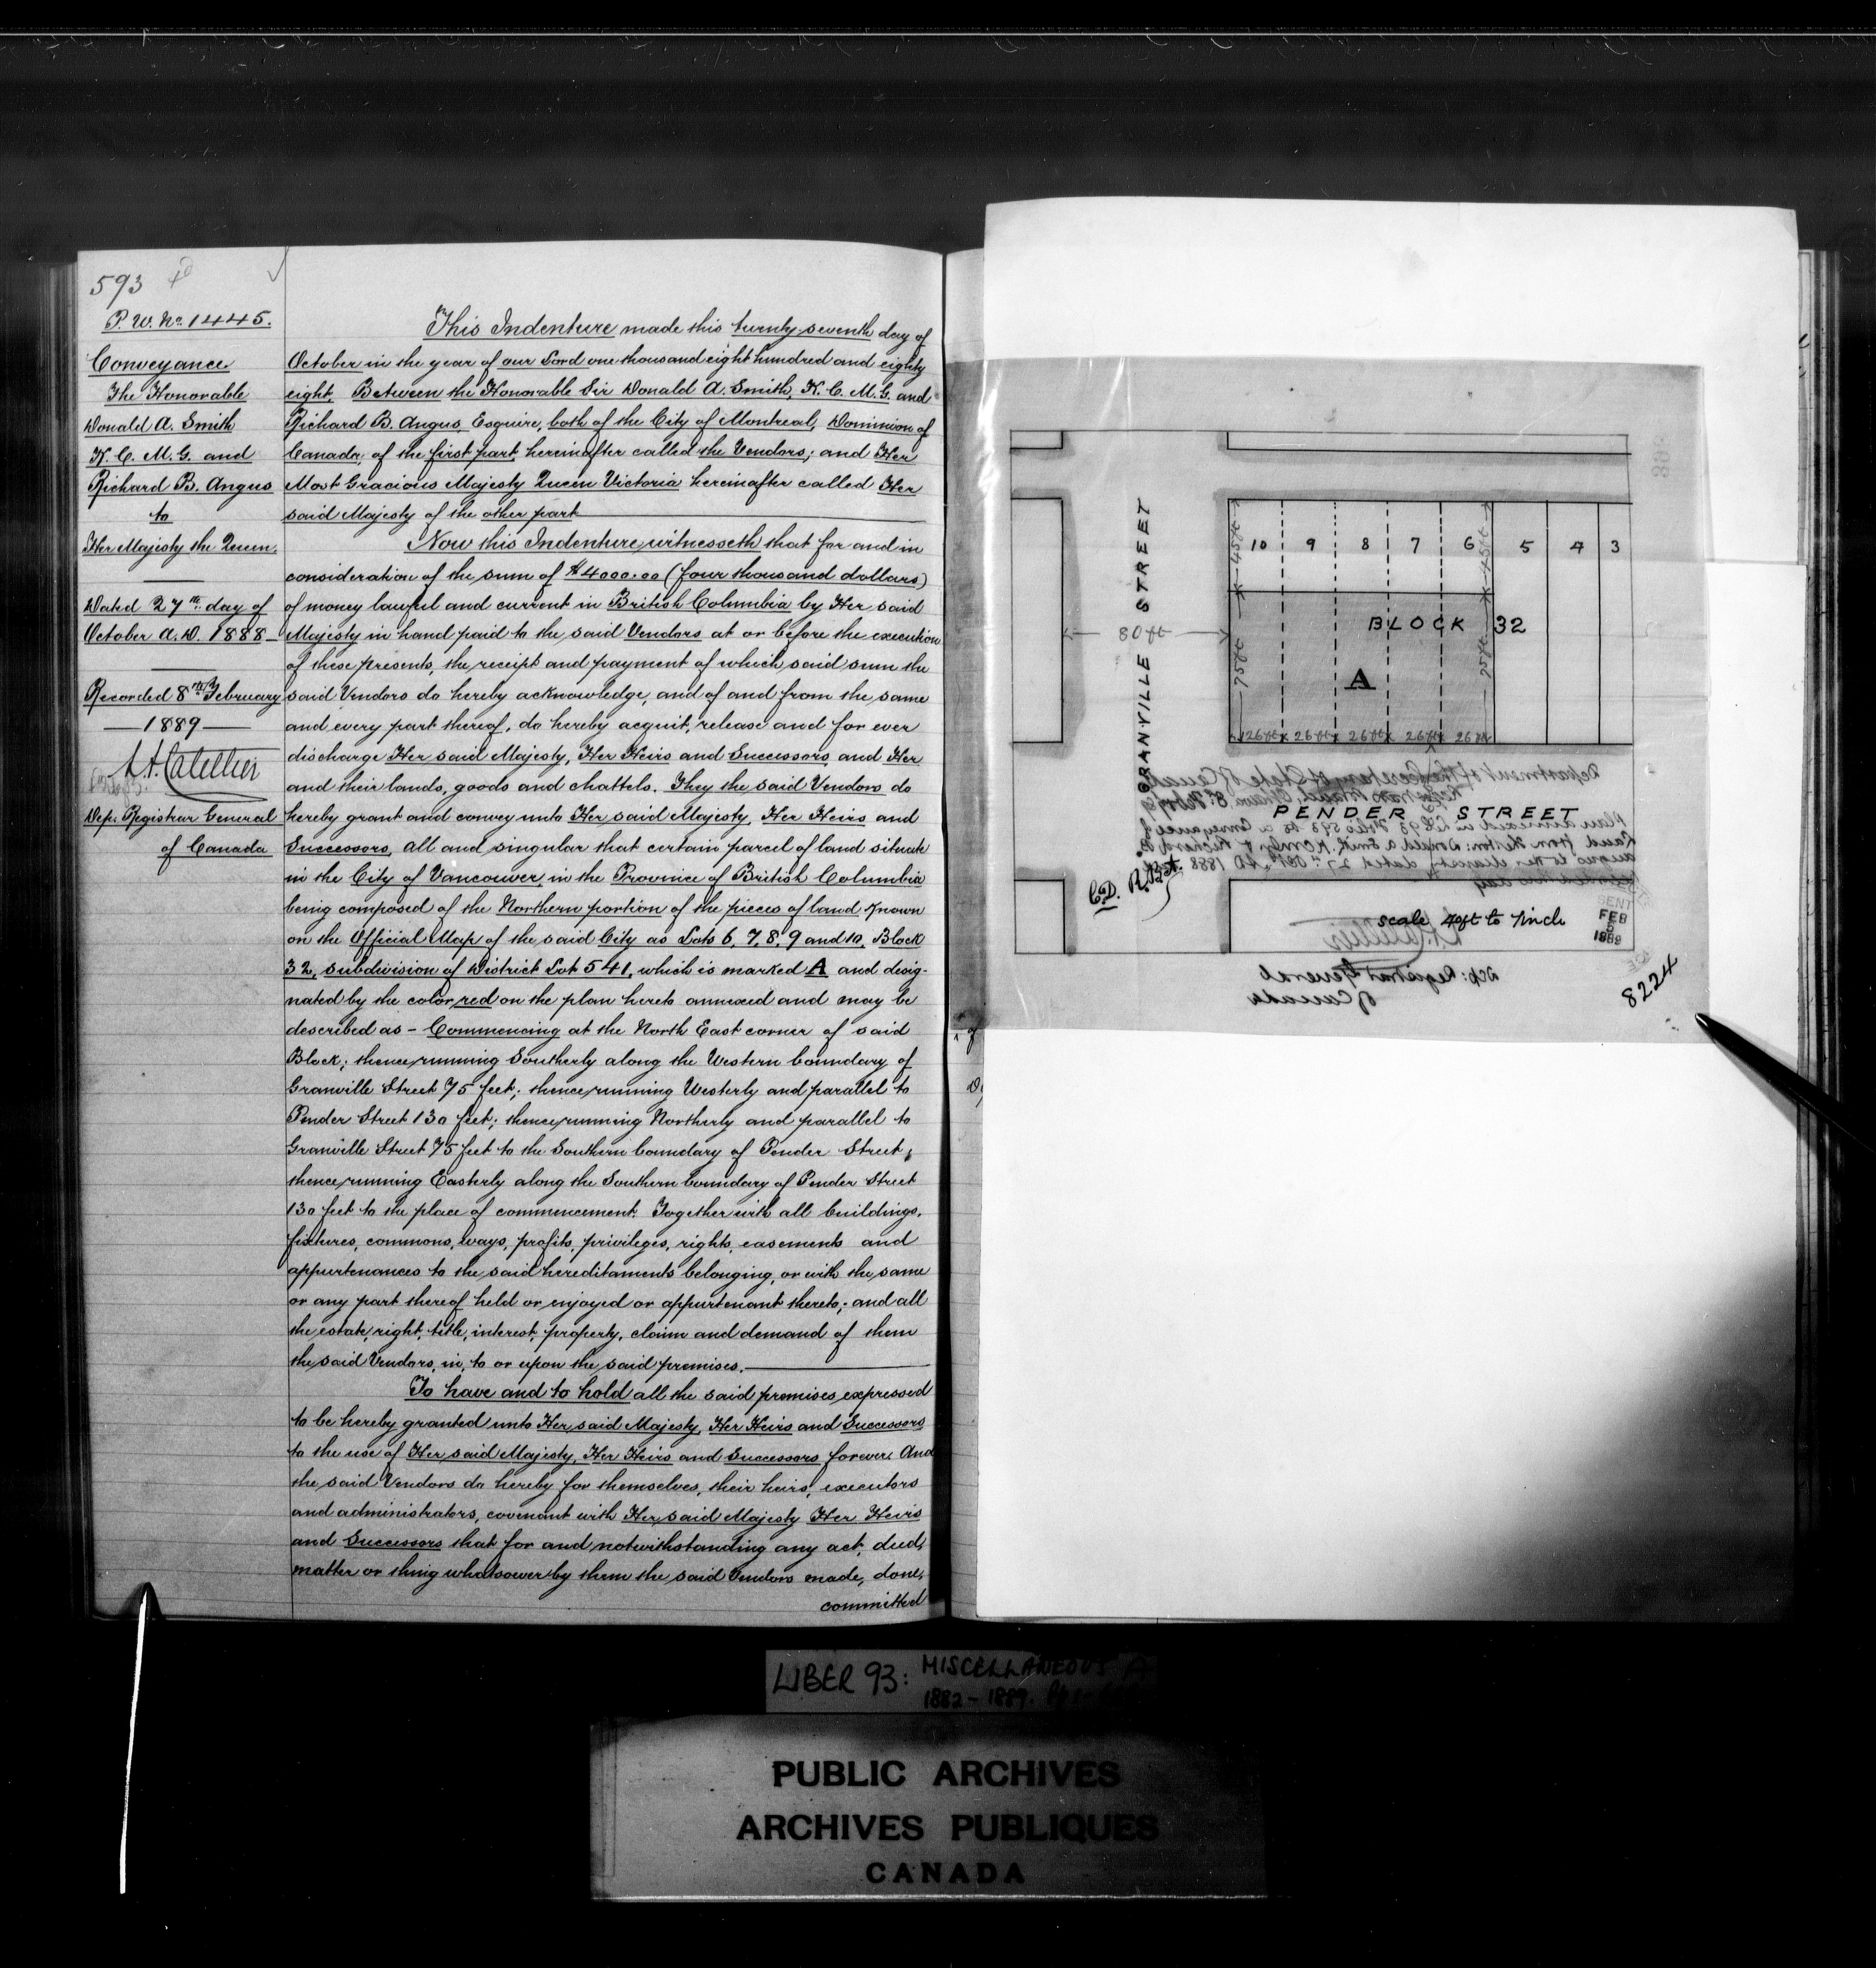 593
P. W. No. 1445.
Conveyance
The Honorable
Donald A. Smith
K. C. M. G. and
Richard B. Angus
to
Her Majesty the Queen.
Dated 27th day of
October A. D. 1888
Recorded 8th February
1889
Dep. Registrar General
of Canada
This Indenture made this twenty-seventh day of
October in the year of our Lord one thousand eight hundred and eighty
eight, Between the Honorable Sir Donald A. Smith, K. C. M. G. and
Richard B. Angus, Esquire, both of the City of Montreal, Dominion of
Canada, of the first part, hereinafter called the Vendors; and Her
Most Gracious Majesty Queen Victoria hereinafter called Her
said Majesty of the other part
Now this Indenture witnesseth that for and in
consideration of the sum of $4000.00 (four thousand dollars)
of money lawful and current in British Columbia by Her said
Majesty in hand paid to the said Vendors at or before the execution
of these presents, the receipt and payment of which said sum the
said Vendors do hereby acknowledge, and of and from the same
and every part thereof, do hereby acquit, release and for ever
discharge Her said Majesty, Her Heirs and Successors and Her
and their lands, goods and chattels. They the said Vendors do
hereby grant and convey unto Her said Majesty, Her Heirs and
Successors, all and singular that certain parcel of land situate
in the City of Vancouver, in the Province of British Columbia
being composed of the Northern portion of the pieces of land known
on the Official Map of the said City as Lots 6, 7, 8, 9 and 10, Block
32, subdivision of District Lot 541, which is marked A and desig-
nated by the color red on the plan hereto annexed and may be
described as - Commencing at the North East corner of said
Block; thence running Southerly along the Western boundary of
Granville Street 75 feet; thence running Westerly and parallel to
Pender Street 130 feet; thence running Northerly and parallel to
Granville Street 75 feet to the Southern boundary of Pender Street;
thence running Easterly along the Southern boundary of Pender Street
130 feet to the place of commencement. Together with all buildings,
fixtures, commons, ways, profits, privileges, rights, easements and
appurtenances to the said hereditaments belonging, or with the same
or any part thereof held or enjoyed or appurtenant thereto; and all
the estate, right, title, interest, property, claim and demand of them
the said Vendors, in, to or upon the said premises.
To have and to hold all the said premises expressed
to be hereby granted unto Her said Majesty, Her Heirs and Successors
to the use of Her said Majesty, Her Heirs and Successors forever. And
the said Vendors do hereby for themselves, their heirs, executors
and administrators, covenant with Her said Majesty Her Heirs
and Successors that for and notwithstanding any act, deed,
matter or thing whatsoever by them the said Vendors made, done,
committed
GRANVILLE STREET
80 ft
45 ft
10 9 8 7 6 5 4 3
45 ft
BLOCK 32
75 ft
A
75 ft
26 ft 26 ft 26 ft 26 ft 26 ft
Department of the Secretary of State of Canada
PENDER STREET
scale 40ft to 1 inch
SENT
FEB
5
1889
Dep: Registrar General
of Canada
8224
LIBER 93: MISCELLANEOUS A
1882 - 1889.
PUBLIC ARCHIVES
ARCHIVES PUBLIQUES
CANADA